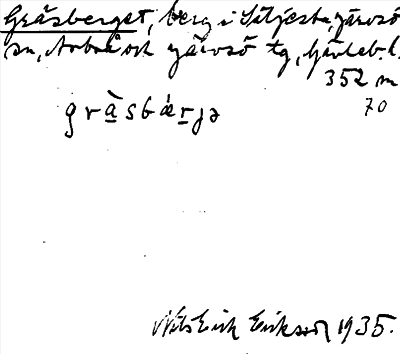 Gråsberget, berg i Säljesta, Järvsö
sn, Arbrå och Järvsö tg, Gävleb. l.
352 m
70
gràsbǽrjə
Nils Erik Eriksson 1935.